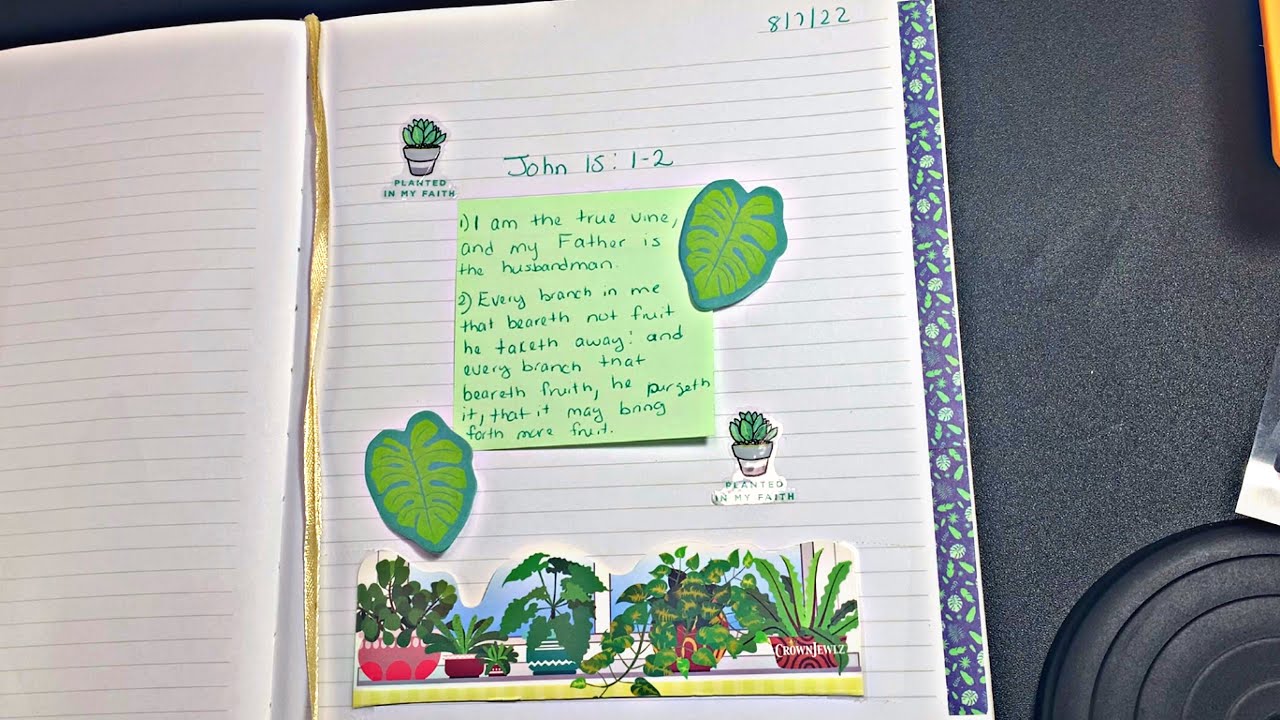 8/7/22
PLANTED
IN MY FAITH
John 15:1-2
1) I am the true vine,
and my Father is
the husbandman.
2) Every branch in me
that beareth not fruit
he taketh away: and
every branch that
beareth fruith, he purgeth
it, that it may bring
forth more fruit.
PLANTED
IN MY FAITH
CROWNJEWLZ